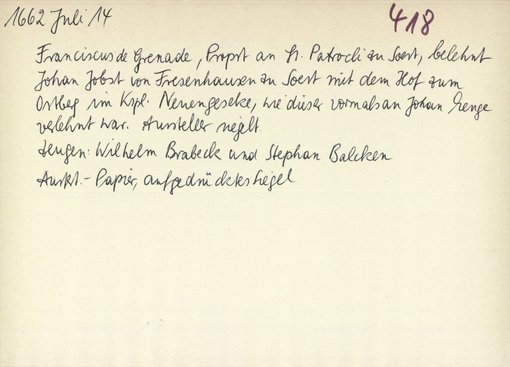 1662 Juli 14
418
Franciscus de Grenade, Propst an St. Patrocli zu Soest, belehnt
Johan Jobst von Fresenhausen zu Soest mit dem Hof zum
Ostberg im Kspl. Neuengeseke, wie dieser vormals an Johan Menge
verlehnt war. Aussteller siegelt.
Zeugen: Wilhelm Brabeck und Stephan Balcken
Ausf.- Papier, aufgedrücktes Siegel